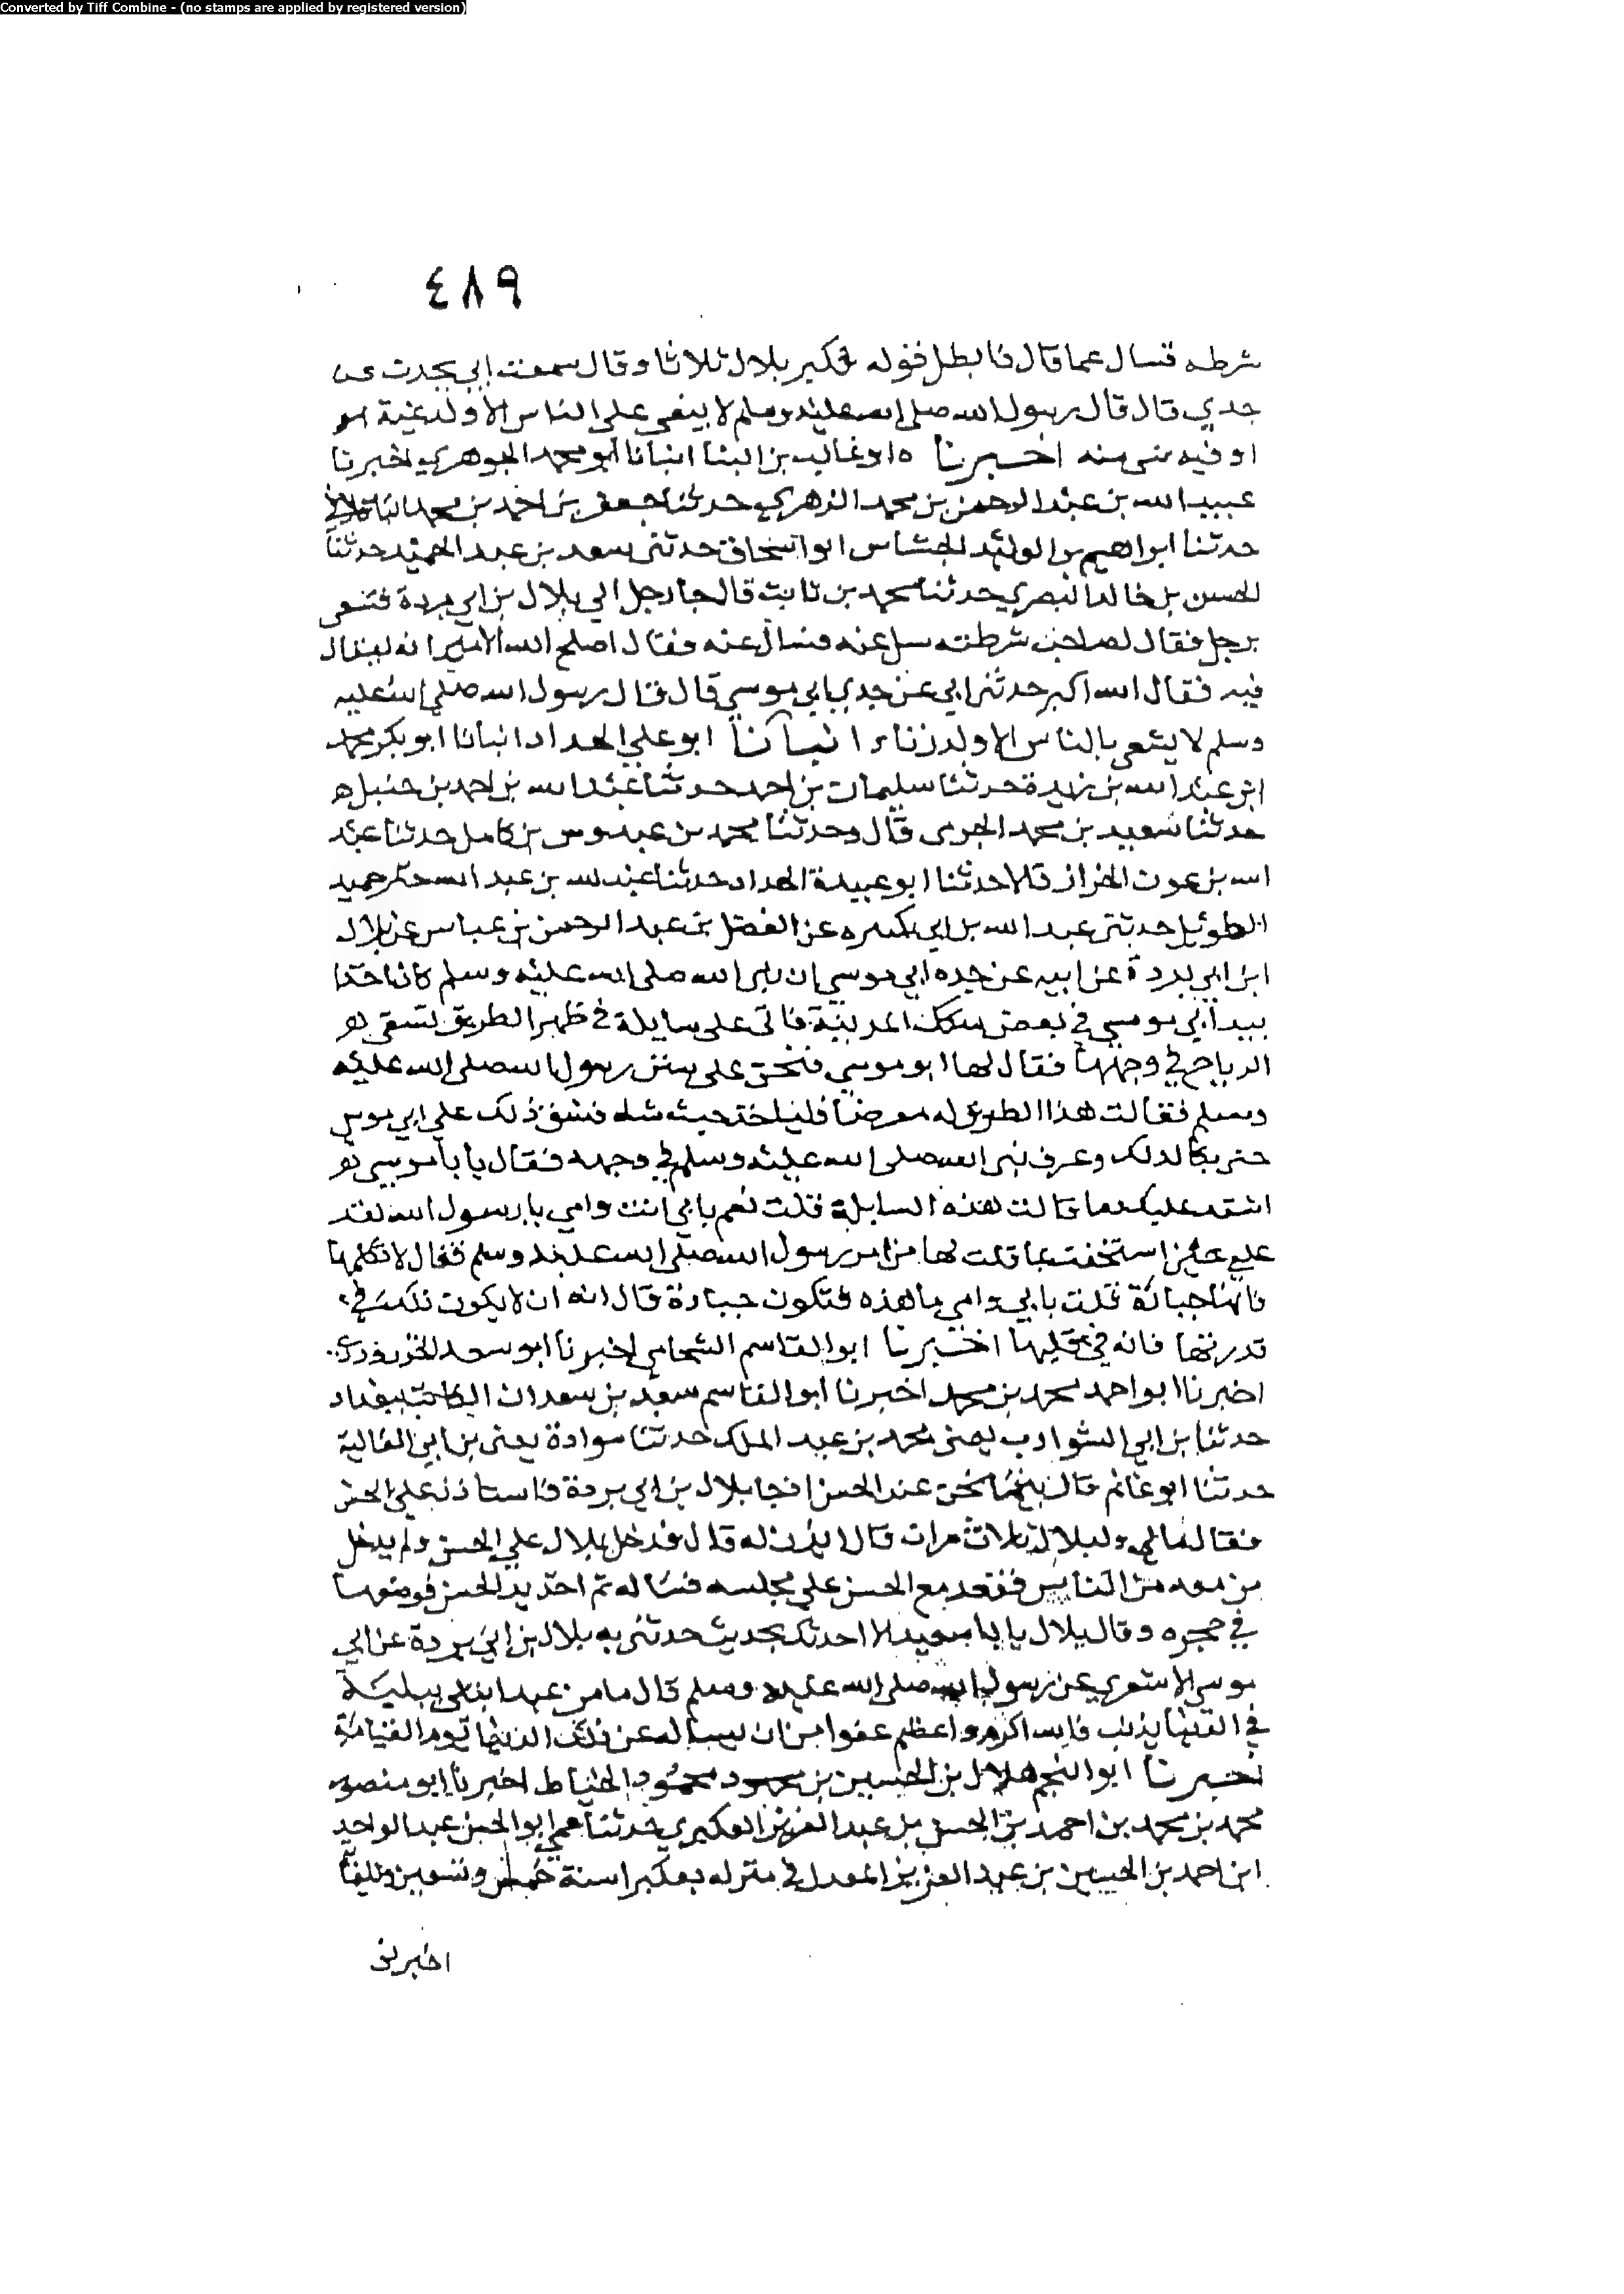 Converted by Tiff Combine - (no stamps are applied by registered version)
٤٨٩
شرطه فسال عما قال فابطل فوله فكبر بلال ثلاثا وقال سمعت ابي يحدث عن
جدي قال قال رسول الله صلى الله عليه وسلم لا يبغي على الناس الا ولد غية
او فيه شى منه اخبرنا ابو غالب بن البنا انبانا ابو محمد الجوهري اخبرنا
عبيد الله بن عبد الرحمن بن محمد الزهري حدثنا جعفر بن احمد بن محمد
حدثنا ابراهيم بن الوليد الجشاس ابو اسحاق حدثنى سعد بن عبد الحميد حدثنا
الحسن بن خالد البصري حدثنا محمد بن ثابت قال جا رجل الي بلال بن ابي بردة فسعى
برجل فقال لصاحب شرطته سل عنه فسال عنه فقال اصلح الله الامير انه ليقال
فيه فقال الله اكبر حدثنى ابي عن جدي ابي موسي قال قال رسول الله صلى الله عليه
وسلم لا يسعى بالناس الا ولد زناء انبانا ابو علي الحداد انبانا ابو بكر محمد
ابن عبد الله بن ريدة حدثنا سليمان بن احمد حدثنا عبد الله بن احمد بن حنبل
حدثنا سعيد بن محمد الجرمى قال وحدثنا محمد بن عبدوس بن كامل حدثنا عبد
الله بن عون الخراز قالا حدثنا ابو عبيدة الحداد حدثنا عبد الله بن عبد الله حميد
الطويل حدثنى عبد الله بن ابي عن الفضل بن عبد الرحمن بن عباس عن بلال
ابن ابي بردة عن ابيه عن جده ابي موسي ان نبى الله صلى الله عليه وسلم كان اخذا
بيد ابي موسي في بعض سكك المدينة فاتى على سايلة في ظهر الطريق تسقى
الرياح في وجهها فقال لها ابو موسي فتنحى على سنن رسول الله صلى الله عليه
وسلم فقالت هذا الطريق له معرضا فلياخذ حيث شاء فشق ذلك علي ابي موسى
حتى لذلك وعرف نبى الله صلى الله عليه وسلم في وجهه فقال يا با موسى
اشتد عليك ما قالت هذه السايلة قلت نعم بابي انت وامي يا رسول الله لقد
علي حين استخفت بما قلت لها من امر رسول الله صلى الله عليه وسلم فقال لا تكلمها
فانها جبارة فقلت بابي وامي ما هذه فتكون جبارة قال انه ان لا يكون ذلك في
قدرتها فانه في قلبها اخبرنا ابو القاسم الشحامي اخبرنا ابو سعد الجنزرودي
اخبرنا ابو احمد محمد بن محمد اخبرنا ابو القاسم سعيد بن سعدان الكاتب ببغداد
حدثنا بن ابي الشوارب يعنى محمد بن عبد الملك حدثنا سوادة يعنى بن ابي العالية
حدثنا ابو غانم قال بينما نحن عند الحسن اذ جا بلال بن ابي بردة فاستاذن علي الحسن
فقال ما لي ولبلال ثلاث مرات قال ايذن له قال فدخل بلال علي الحسن ولم يدخل
من معه من الناس فقعد مع الحسن علي مجلسه فساله ثم اخذ يد الحسن فوضعها
في حجره وقال بلال يا با سعيد الا احدثك بحديث حدثنى به بلال بن ابي بردة عن ابي
موسى الاشعري عن رسول الله صلى الله عليه وسلم قال ما من عبد ابتلى ببلية
في الدنيا بذنب فالله اكرم واعظم عفوا من ان يساله عن ذلك الذنب يوم القيامة
اخبرنا ابو النجم هلال بن الحسين بن محمود الخياط اخبرنا ابو منصور
محمد بن محمد بن احمد بن الحسين بن عبد العزيز العكبري حدثنا عمي ابو الحسن عبد الواحد
ابن احمد بن الحسين بن عبد العزيز المعدل في منزله بعكبرا سنة خمس وتسعين وثلثماية
اخبرنى